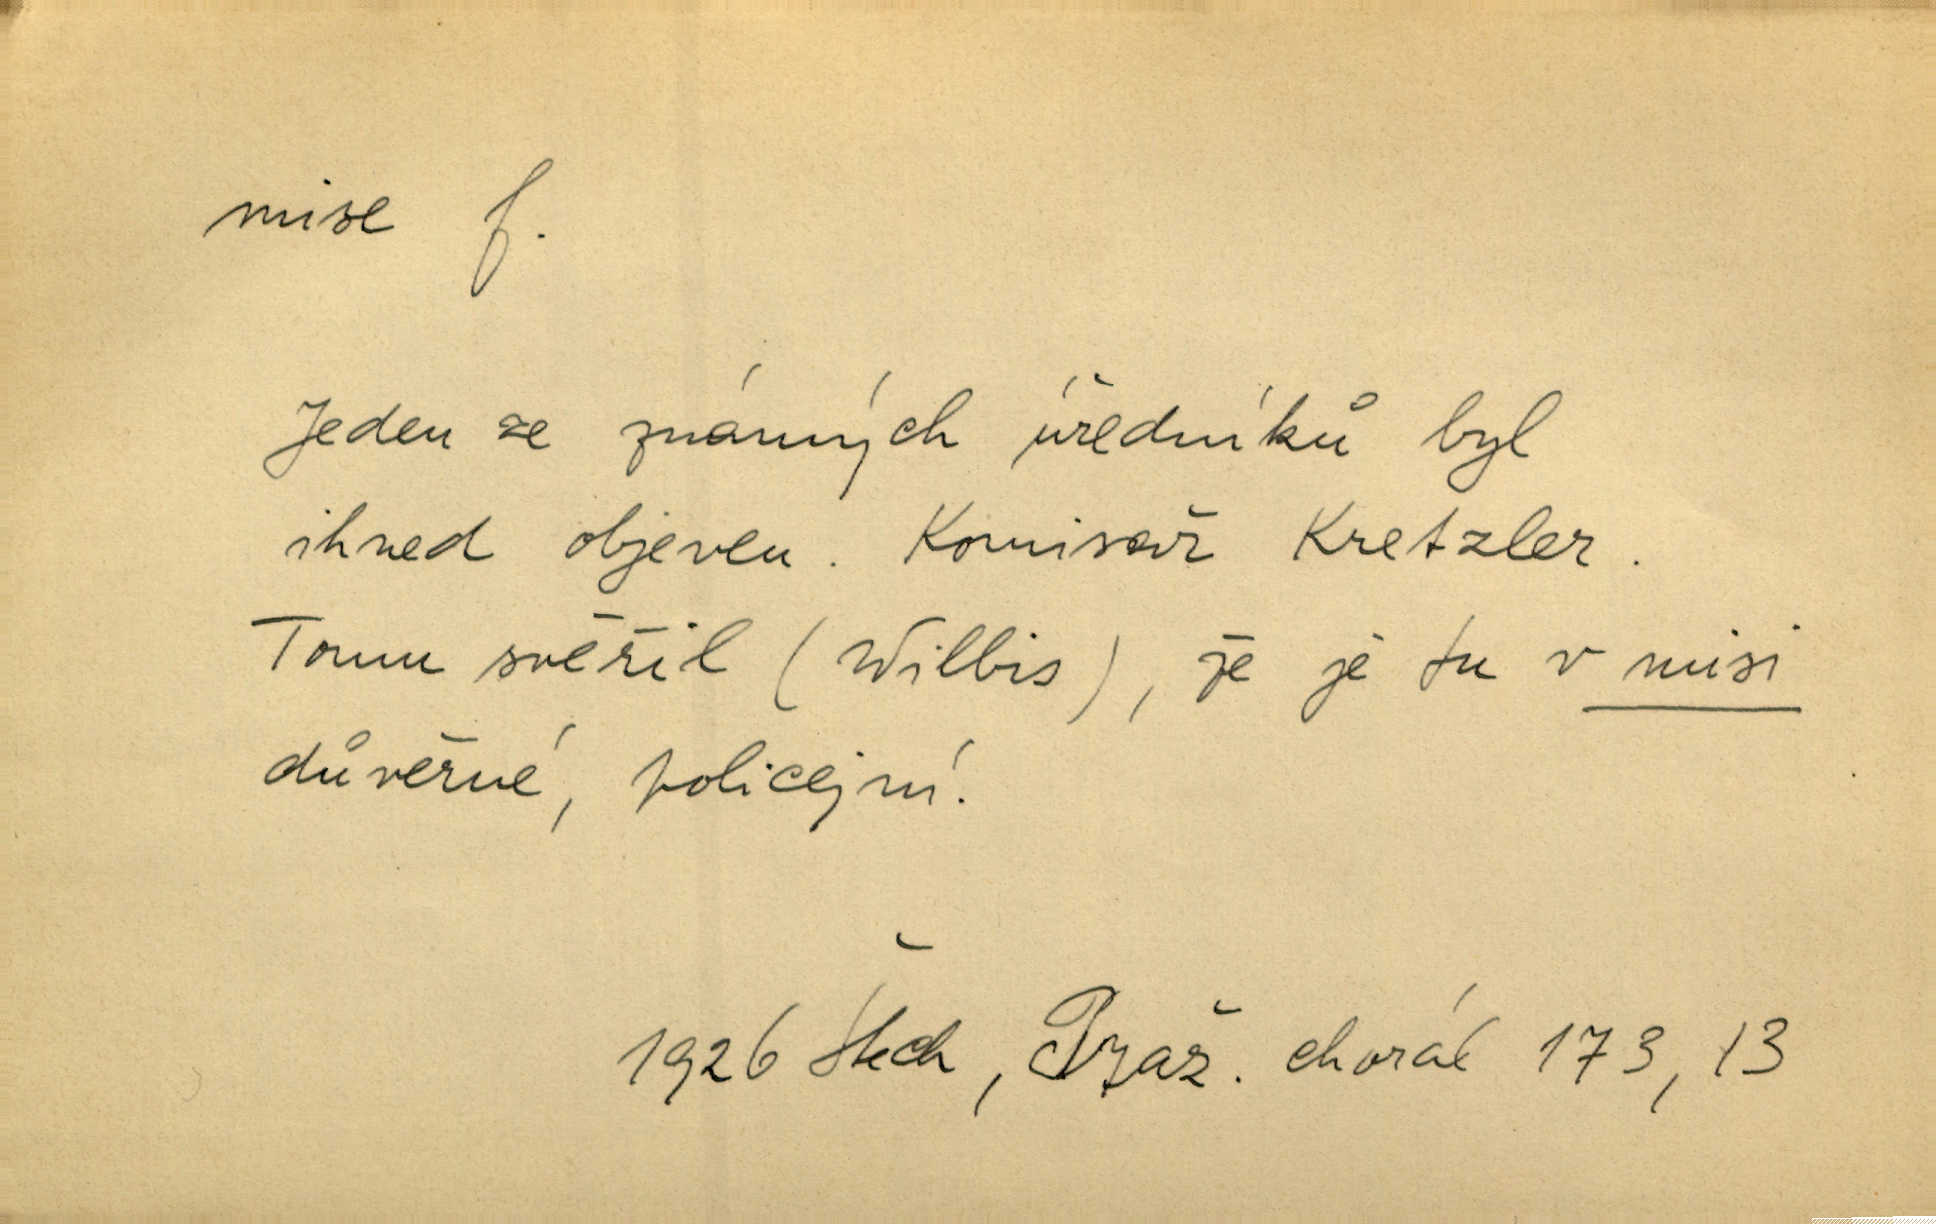 mise f.
Jeden ze známých úředníků byl
ihned objeven. Komisař Kretzler.
Tomu svěřil (Willis), že je tu v misi
důvěrné, policejní.
1926 Štech, Pyaž. chorál 173, 13